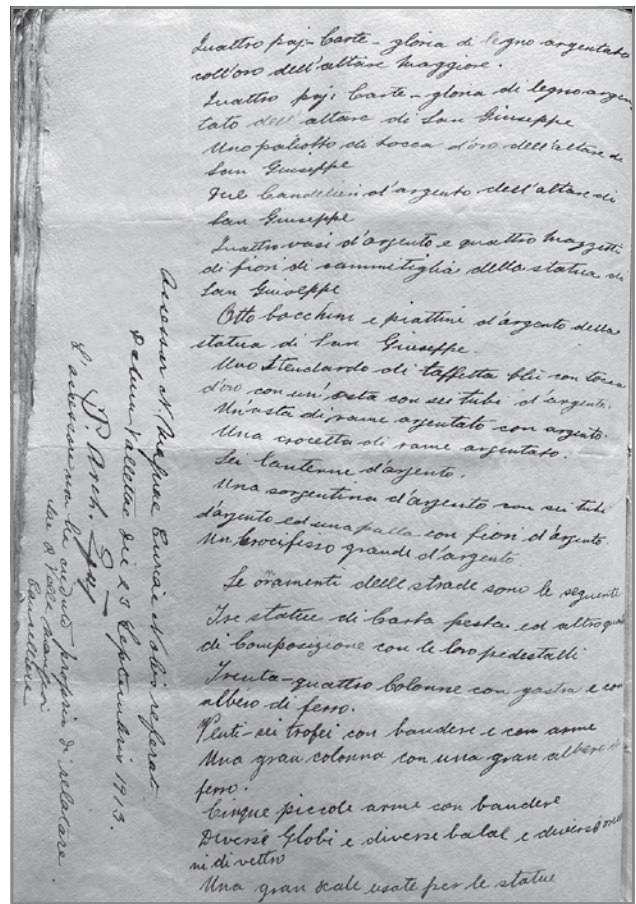 Quattro paj: Carte-gloria di legno argentato
coll'oro dell'altare Maggiore.
Quattro paj: Carte-gloria di legno argen
tato dell'altare di San Giuseppe
Uno paliotto di tocca d'oro dell'altare di
San Giuseppe
Due Candelieri d'argento dell'altare di
San Giuseppe
Quattro vasi d'argento e quattro Mazzetti
di fiori di rammitiglia della statua di
San Giuseppe
Otto bocchini e piattini d'argento della
statua di San Giuseppe.
Uno Stendardo di taffettà blù con tocca
d'oro con un'asta con sei tubi d'argento.
Un'asta di rame argentato con argento.
Una crocetta di rame argentato.
Sei lanterne d'argento.
Una sorgentina d'argento con sei tubi
d'argento ed una palla con fiori d'argento.
Un Crocifisso grande d'argento
Le ornamenti delle strade sono le seguenti
Tre statue di Carta pesta ed altro
di Composizione con le loro pedestalli
Trenta-quattro Colonne con gastra e con
albero di ferro.
Venti-sei trofei con bandere e con arme
Una gran colonna con una gran albero di
ferro.
Cinque piccole arme con bandere
Diverse Globi e diverse balal e diverse
ni di vetro
Una gran scale usate per le statue
Assessor N. Magnae Curiae Nobis referat
Datum Vallettae die 23 Septembris 1913.
L'assessore non ha creduto proprio di relatare.
Cancelliere